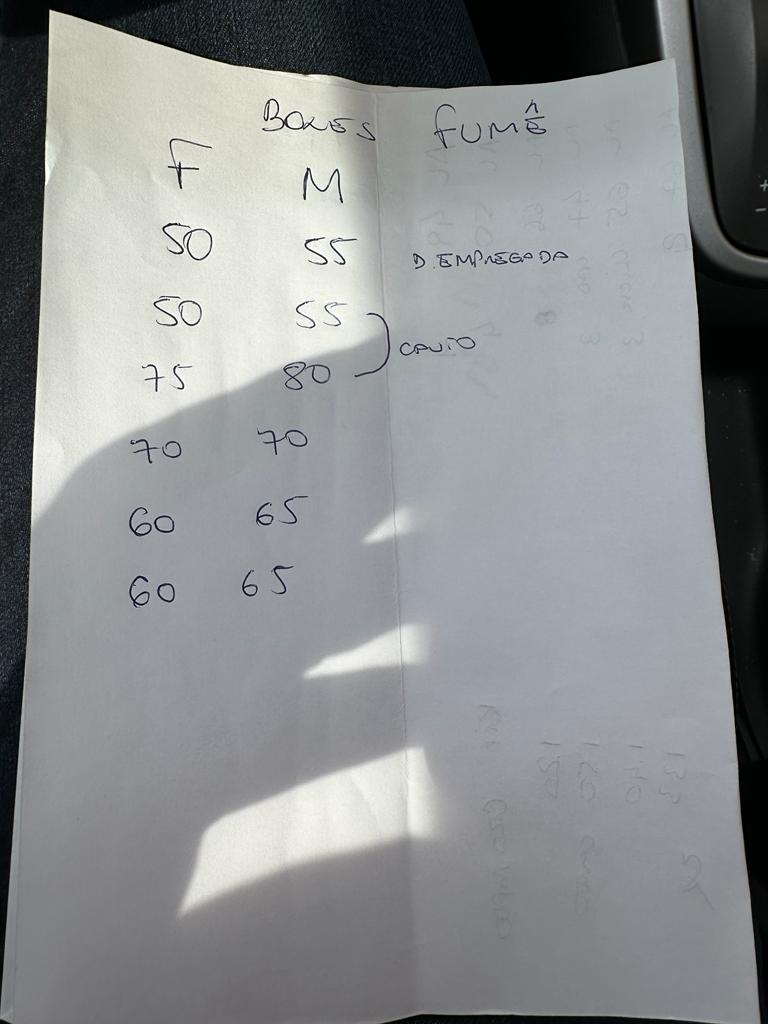 BOXES FUMÊ
F M
50 55 D.EMPREGADA
50 55
CANTO
75 80
70 70
60 65
60 65